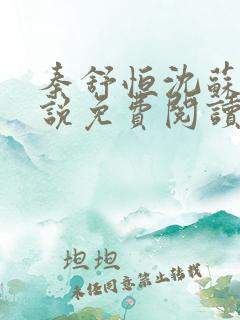 秦舒恒沈蘇
說免費閱讀
坦坦
未經同意禁止轉載